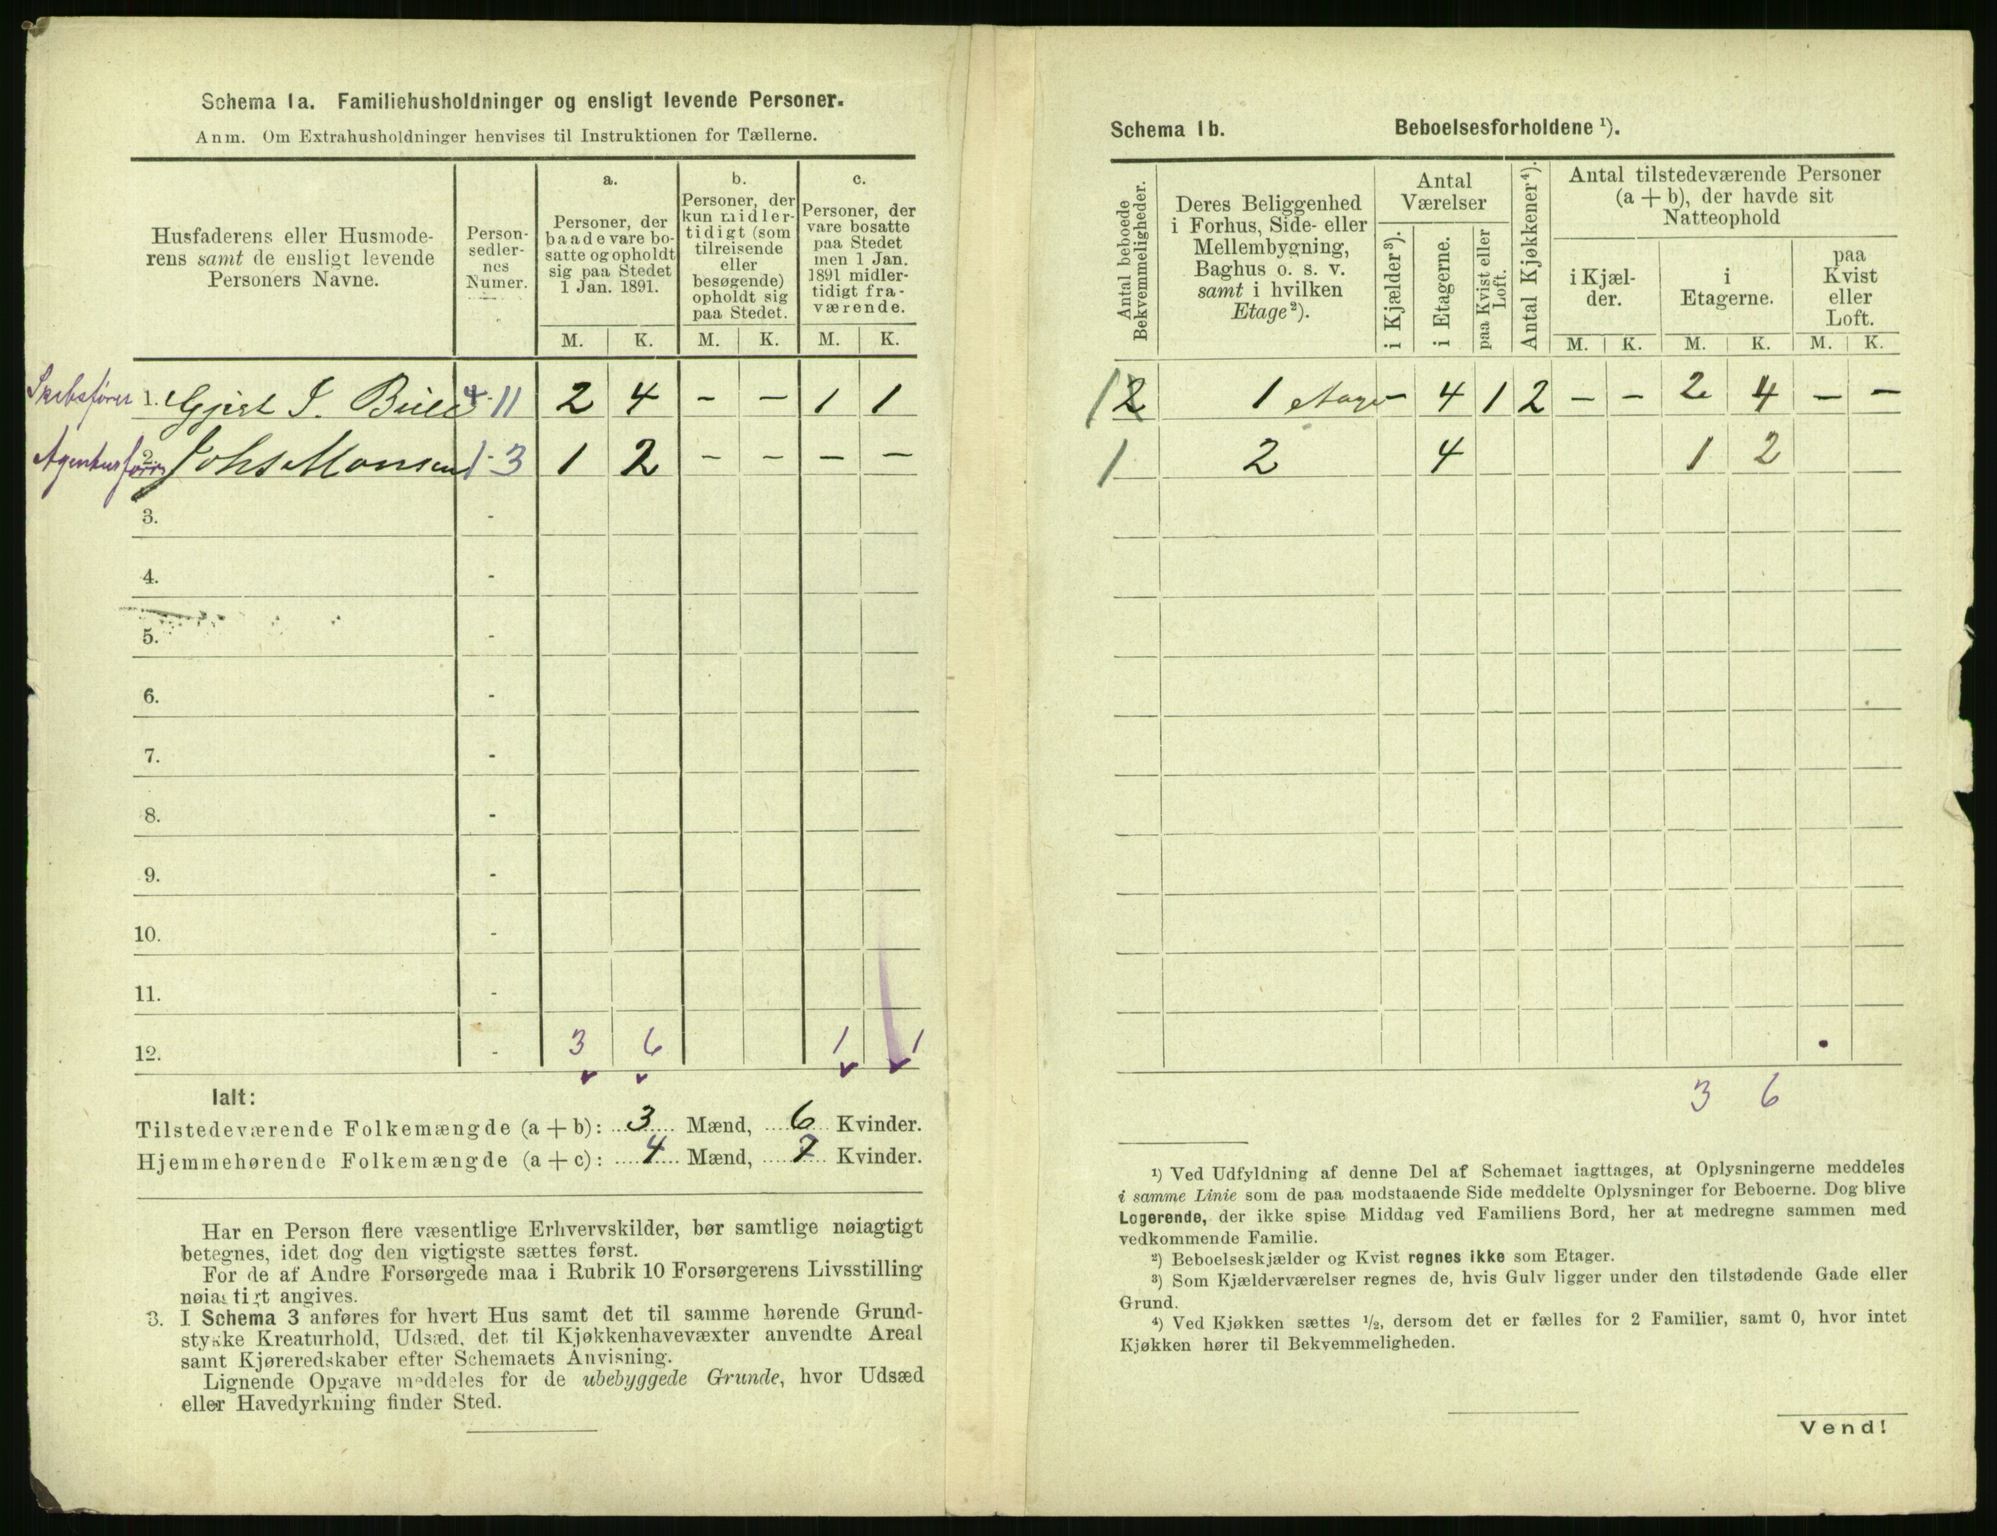 Schema 1a. Familiehusholdninger og ensligt levende Personer.
Anm. Om Extrahusholdninger henvises til Instruktionen for Tællerne.
Husfaderens eller Husmode-
rens samt de ensligt levende
Personers Navne.
Person-
sedler-
nes
Numer.
a.
Personer, der
baade vare bo-
satte og opholdt
sig paa Stedet
1 Jan. 1891.
b.
Personer, der
kun midler-
tidigt (som
tilreisende
eller
besøgende)
opholdt sig
paa Stedet.
c.
Personer, der
vare bosatte
paa Stedet
men 1 Jan.
1891 midler-
tidigt fra-
værende.
M. K. M. K. M. K.
1. Gjert S. 4-11 2 4 - - 1 1
2. Johs Monsen 1-3 1 2 - - - -
3. -
4. -
5. -
6. -
7. -
8. -
9. -
10. -
11. -
12. - 3 6 1 1
Ialt:
Tilstedeværende Folkemængde (a + b): 3 Mænd, 6 Kvinder.
Hjemmehørende Folkemængde (a + c): 4 Mænd, 7 Kvinder.
Har en Person flere væsentlige Erhvervskilder, bør samtlige nøiagtigt
betegnes, idet dog den vigtigste sættes først.
For de af Andre Forsørgede maa i Rubrik 10 Forsørgerens Livsstilling
nøiagtigt angives.
3. I Schema 3 anføres for hvert Hus samt det til samme hørende Grund-
stykke Kreaturhold, Udsæd, det til Kjøkkenhavevæxter anvendte Areal
samt Kjøreredskaber efter Schemaets Anvisning.
Lignende Opgave meddeles for de ubebyggede Grunde, hvor Udsæd
eller Havedyrkning finder Sted.
Schema 1b. Beboelsesforholdene ¹).
Antal beboede
Bekvemmeligheder.
Deres Beliggenhed
i Forhus, Side- eller
Mellembygning,
Baghus o. s. v.
samt i hvilken
Etage²).
Antal
Værelser
i Kjælder³).
i Etagerne.
paa Kvist eller
Loft.
Antal Kjøkkener⁴).
Antal tilstedeværende Personer
(a + b), der havde sit
Natteophold
i Kjæl-
der.
i
Etagerne.
paa
Kvist
eller
Loft.
M. K. M. K. M. K.
1 2 1 Etage - 4 1 2 - - 2 4 - -
1 2 4 1 2
3 6
¹) Ved Udfyldning af denne Del af Schemaet iagttages, at Oplysningerne meddeles
i samme Linie som de paa modstaaende Side meddelte Oplysninger for Beboerne. Dog blive
Logerende, der ikke spise Middag ved Familiens Bord, her at medregne sammen med
vedkommende Familie.
²) Beboelseskjælder og Kvist regnes ikke som Etager.
³) Som Kjælderværelser regnes de, hvis Gulv ligger under den tilstødende Gade eller
Grund.
⁴) Ved Kjøkken sættes ¹/₂, dersom det er fælles for 2 Familier, samt 0, hvor intet
Kjøkken hører til Bekvemmeligheden.
Vend!